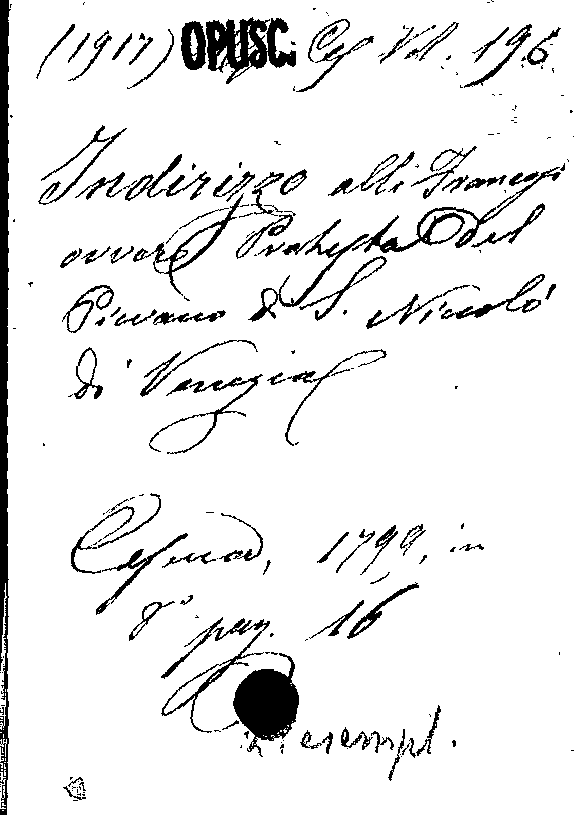 (1917) OPUSC. Ces Vol. 196
Indirizzo alli Francesi
ovvero Protesta del
Piovano di S. Niccolò
di Venezia
Cesena, 1799, in
8° pag. 16
2 esempl.